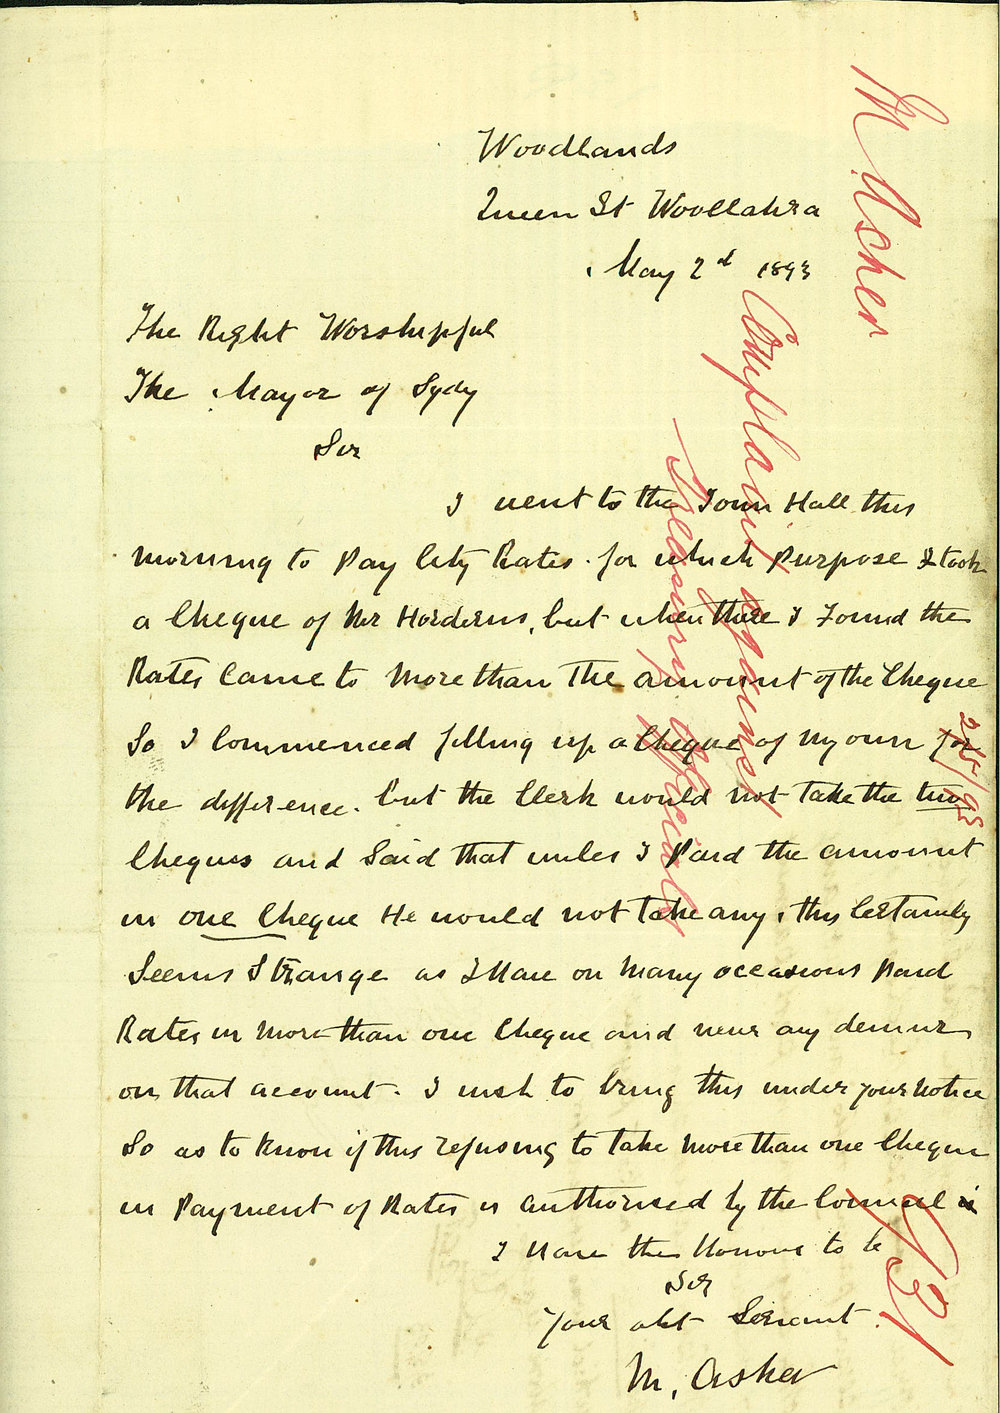 Woodlands
Queen St Woollahra
May 2d 1893
The Right Worshipful
The Mayor of Sydy
Sir
I went to the Town Hall this
morning to Pay City Rates for which Purpose I took
a Cheque of Mr Horderns, but when there I Found the
Rates Came to More than The amount of the Cheque
So I Commenced filling up a Cheque of My own for
the difference. but the Clerk would not Take the two
Cheques and Said that unless I Paid the amount
in one Cheque He would not Take any, this Certainly
Seems Strange as I Have on Many occasions Paid
Rates in More than one Cheque and never any demur
on that account. I wish to bring this under your Notice
So as to Know if this refusing to Take More than one Cheque
in Payment of Rates is authorised by the Council
I Have the Honour to be
Sir
Your obt Servant
M. Asher
M Ascher
Complaint against
Treasury Officials
931